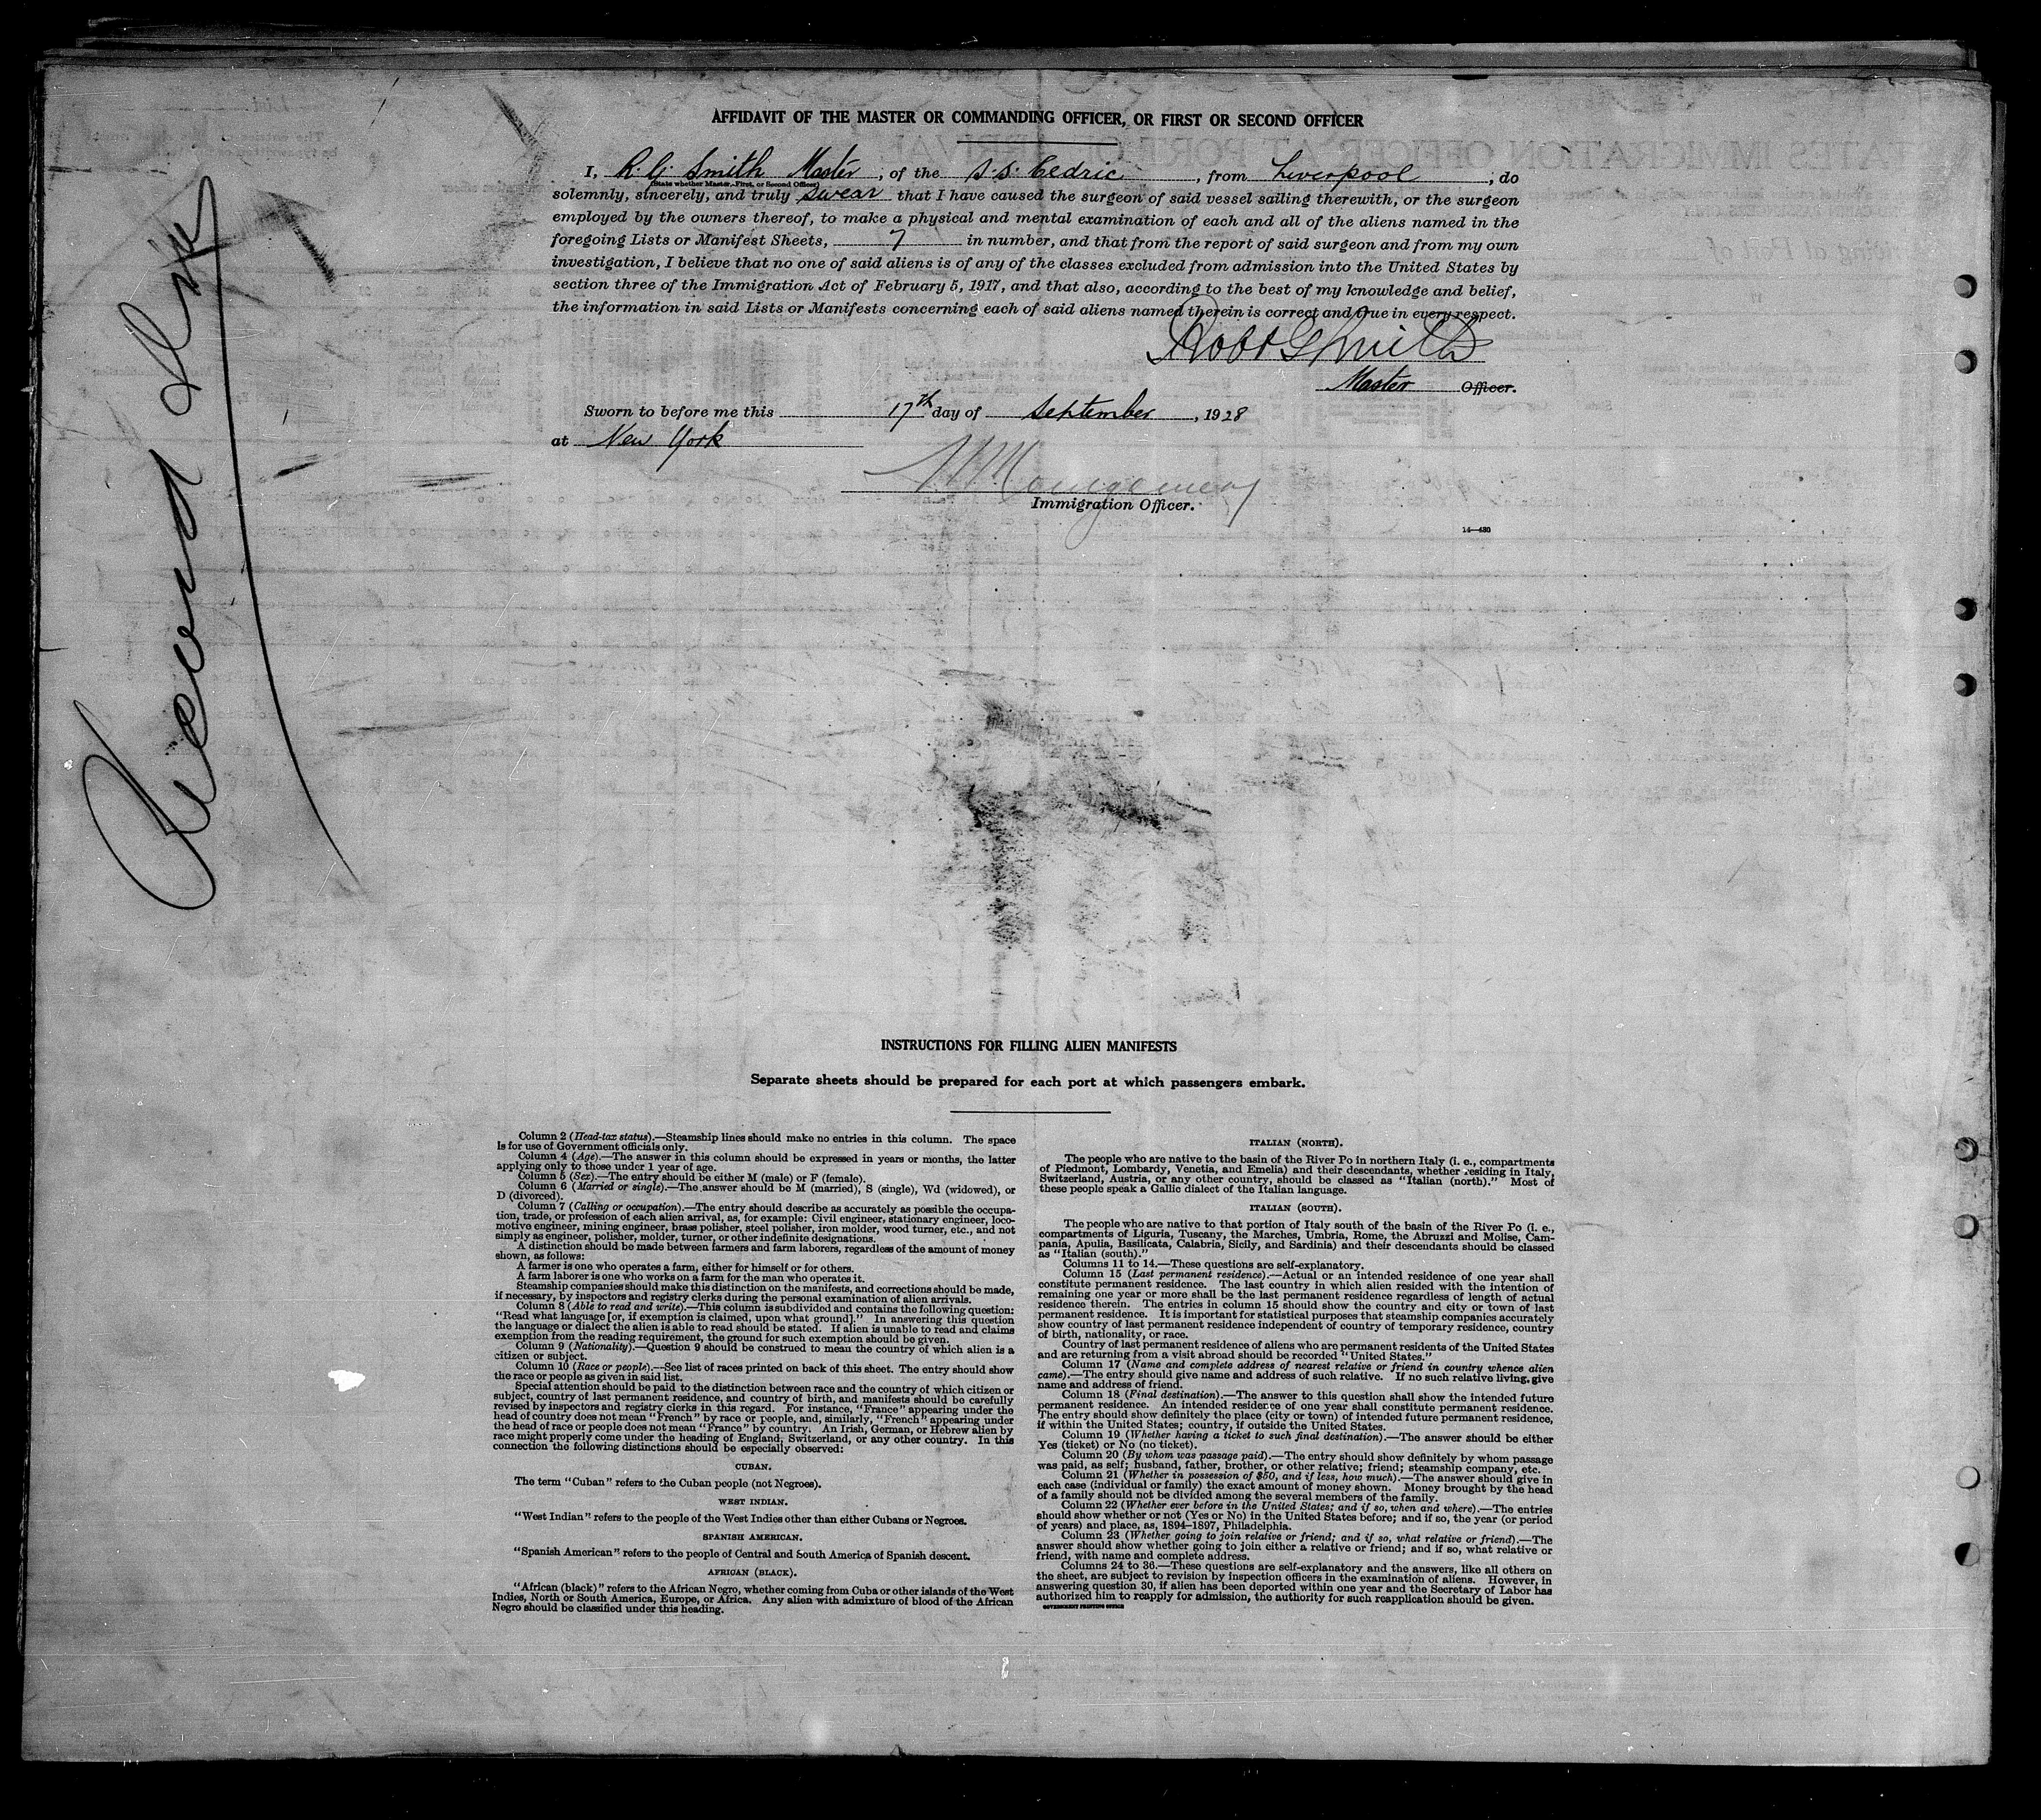 AFFIDAVIT OF THE MASTER OR COMMANDING OFFICER, OR FIRST OR SECOND OFFICER
I, R. G. Smith Master, of the S.S. Cedric, from Liverpool, do
(State whether Master, First, or Second Officer)
solemnly, sincerely, and truly swear that I have caused the surgeon of said vessel sailing therewith, or the surgeon
employed by the owners thereof, to make a physical and mental examination of each and all of the aliens named in the
foregoing Lists or Manifest Sheets, 7 in number, and that from the report of said surgeon and from my own
investigation, I believe that no one of said aliens is of any of the classes excluded from admission into the United States by
section three of the Immigration Act of February 5, 1917, and that also, according to the best of my knowledge and belief,
the information in said Lists or Manifests concerning each of said aliens named therein is correct and true in every respect.
Robt G Smith
Master Officer.
Sworn to before me this 17th day of September, 1928
at New York
Montgomery
Immigration Officer.
14—430
Second
INSTRUCTIONS FOR FILLING ALIEN MANIFESTS
Separate sheets should be prepared for each port at which passengers embark.
Column 2 (Head-tax status).—Steamship lines should make no entries in this column. The space
is for use of Government officials only.
Column 4 (Age).—The answer in this column should be expressed in years or months, the latter
applying only to those under 1 year of age.
Column 5 (Sex).—The entry should be either M (male) or F (female).
Column 6 (Married or single).—The answer should be M (married), S (single), Wd (widowed), or
D (divorced).
Column 7 (Calling or occupation).—The entry should describe as accurately as possible the occupa-
tion, trade, or profession of each alien arrival, as, for example: Civil engineer, stationary engineer, loco-
motive engineer, mining engineer, brass polisher, steel polisher, iron molder, wood turner, etc., and not
simply as engineer, polisher, molder, turner, or other indefinite designations.
A distinction should be made between farmers and farm laborers, regardless of the amount of money
shown, as follows:
A farmer is one who operates a farm, either for himself or for others.
A farm laborer is one who works on a farm for the man who operates it.
Steamship companies should make this distinction on the manifests, and corrections should be made,
if necessary, by inspectors and registry clerks during the personal examination of alien arrivals.
Column 8 (Able to read and write).—This column is subdivided and contains the following question:
"Read what language [or, if exemption is claimed, upon what ground]." In answering this question
the language or dialect the alien is able to read should be stated. If alien is unable to read and claims
exemption from the reading requirement, the ground for such exemption should be given.
Column 9 (Nationality).—Question 9 should be construed to mean the country of which alien is a
citizen or subject.
Column 10 (Race or people).—See list of races printed on back of this sheet. The entry should show
the race or people as given in said list.
Special attention should be paid to the distinction between race and the country of which citizen or
subject, country of last permanent residence, and country of birth, and manifests should be carefully
revised by inspectors and registry clerks in this regard. For instance, "France" appearing under the
head of country does not mean "French" by race or people, and, similarly, "French" appearing under
the head of race or people does not mean "France" by country. An Irish, German, or Hebrew alien by
race might properly come under the heading of England, Switzerland, or any other country. In this
connection the following distinctions should be especially observed:
CUBAN.
The term "Cuban" refers to the Cuban people (not Negroes).
WEST INDIAN.
"West Indian" refers to the people of the West Indies other than either Cubans or Negroes.
SPANISH AMERICAN.
"Spanish American" refers to the people of Central and South America of Spanish descent.
AFRICAN (BLACK).
"African (black)" refers to the African Negro, whether coming from Cuba or other islands of the West
Indies, North or South America, Europe, or Africa. Any alien with admixture of blood of the African
Negro should be classified under this heading.
ITALIAN (NORTH).
The people who are native to the basin of the River Po in northern Italy (i. e., compartments
of Piedmont, Lombardy, Venetia, and Emelia) and their descendants, whether residing in Italy,
Switzerland, Austria, or any other country, should be classed as "Italian (north)." Most of
these people speak a Gallic dialect of the Italian language.
ITALIAN (SOUTH).
The people who are native to that portion of Italy south of the basin of the River Po (i. e.,
compartments of Liguria, Tuscany, the Marches, Umbria, Rome, the Abruzzi and Molise, Cam-
pania, Apulia, Basilicata, Calabria, Sicily, and Sardinia) and their descendants should be classed
as "Italian (south)."
Columns 11 to 14.—These questions are self-explanatory.
Column 15 (Last permanent residence).—Actual or an intended residence of one year shall
constitute permanent residence. The last country in which alien resided with the intention of
remaining one year or more shall be the last permanent residence regardless of length of actual
residence therein. The entries in column 15 should show the country and city or town of last
permanent residence. It is important for statistical purposes that steamship companies accurately
show country of last permanent residence independent of country of temporary residence, country
of birth, nationality, or race.
Country of last permanent residence of aliens who are permanent residents of the United States
and are returning from a visit abroad should be recorded "United States."
Column 17 (Name and complete address of nearest relative or friend in country whence alien
came).—The entry should give name and address of such relative. If no such relative living, give
name and address of friend.
Column 18 (Final destination).—The answer to this question shall show the intended future
permanent residence. An intended residence of one year shall constitute permanent residence.
The entry should show definitely the place (city or town) of intended future permanent residence,
if within the United States; country, if outside the United States.
Column 19 (Whether having a ticket to such final destination).—The answer should be either
Yes (ticket) or No (no ticket).
Column 20 (By whom was passage paid).—The entry should show definitely by whom passage
was paid, as self; husband, father, brother, or other relative; friend; steamship company, etc.
Column 21 (Whether in possession of $50, and if less, how much).—The answer should give in
each case (individual or family) the exact amount of money shown. Money brought by the head
of a family should not be divided among the several members of the family.
Column 22 (Whether ever before in the United States; and if so, when and where).—The entries
should show whether or not (Yes or No) in the United States before; and if so, the year (or period
of years) and place, as, 1894–1897, Philadelphia.
Column 23 (Whether going to join relative or friend; and if so, what relative or friend).—The
answer should show whether going to join either a relative or friend; and if so, what relative or
friend, with name and complete address.
Columns 24 to 36.—These questions are self-explanatory and the answers, like all others on
the sheet, are subject to revision by inspection officers in the examination of aliens. However, in
answering question 30, if alien has been deported within one year and the Secretary of Labor has
authorized him to reapply for admission, the authority for such reapplication should be given.
GOVERNMENT PRINTING OFFICE